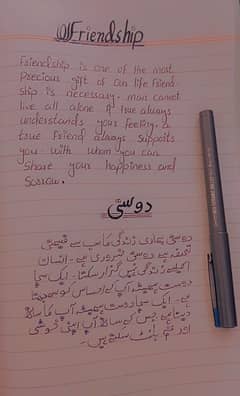 Friendship
Friendship is one of the most
Precious gift of our life Friend
ship is necessary. man cannot
live all alone A true always
understands your feeling. a
true Friend always supports
you with whom you can
Share your happiness and
Sorrow.
دوستی
دوستی ہماری زندگی کا سب سے قیمتی
تحفہ ہے دوستی ضروری ہے۔ انسان
اکیلے زندگی نہیں گزار سکتا۔ ایک سچا
دوست ہمیشہ آپ کے احساس کو سمجھتا
ہے۔ ایک سچا دوست ہمیشہ آپ کا ساتھ
دیتا ہے جس کے ساتھ آپ اپنی خوشی
اور غم بانٹ سکتے ہیں۔